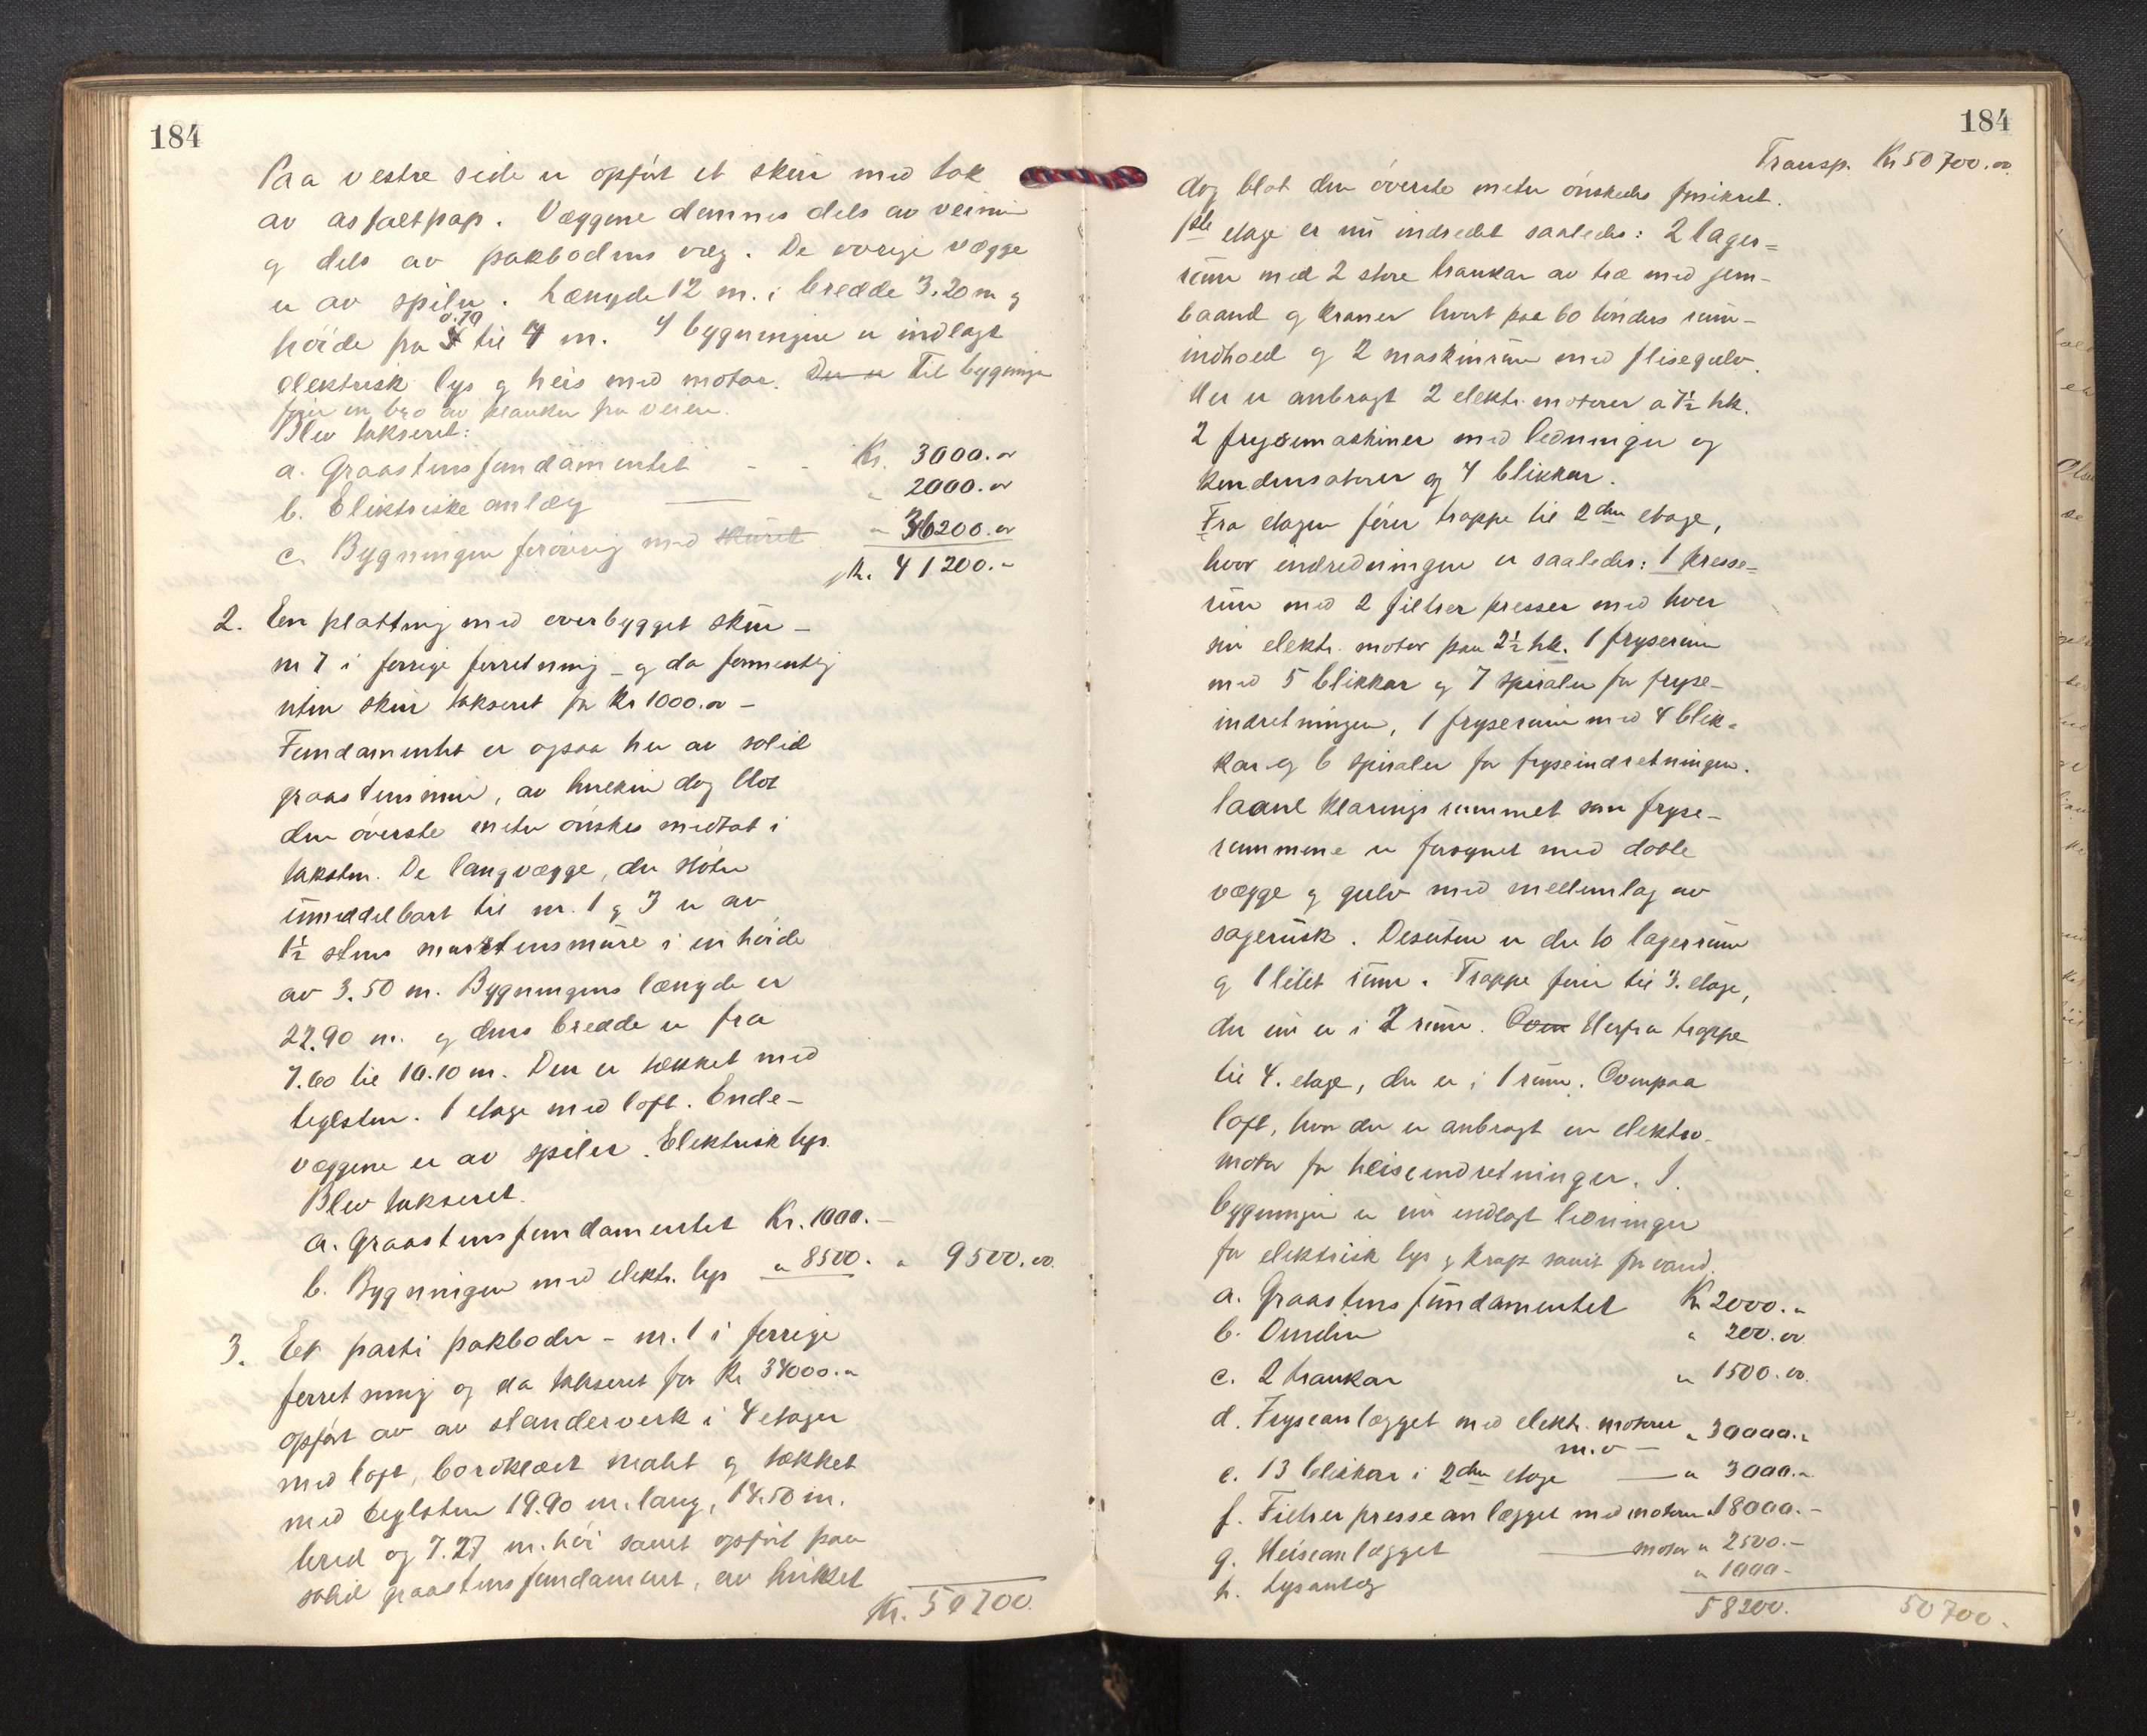 184
Paa vestre side er opført et skur med tak
av asfaltpap. Væggene dannes dels av veimur
og dels av pakbodens væg. De øvrige vægge
er av spiler. Længde 12 m. i bredde 3.20 m og
høide fra 0.70 til 4 m. I bygningen er indlagt
elektrisk lys og heis med motor. Der er Til bygningen
fører en bro av planker fra veien.
Blev takseret:
a. Graastensfundamentet - - Kr. 3000.oo
b. Elektriske anlæg " 2000.oo
c. Bygningen forøvrig med skuret " 36200.oo
Kr. 41200.-
2. En platting med overbygget skur -
nr 7 i forrige forretning - og da formentlig
uten skur takseret for Kr 1000.oo -
Fundamentet er ogsaa her av solid
graastensmur, av hvilken dog blot
den øverste meter ønskes medtat i
taksten. De langvægge, der støter
umiddelbart til nr. 1 og 3 er av
1½ stens murstensmure i en høide
av 3.50 m. Bygningens længde er
22.90 m. og dens bredde er fra
7.60 til 10.10 m. Den er tækket med
teglsten. 1 etage med loft. Ende-
væggene er av spiler. Elektrisk lys.
Blev takseret.
a. Graastensfundamentet Kr. 1000.-
b. Bygningen med elektr. lys " 8500. " 9500.oo.
3. Et parti pakboder - nr. 1 i forrige
forretning og da takseret for Kr 34000.oo
opført av av standerverk i 4 etager
med loft, bordklædt malet og tækket
med teglsten 19.90 m. lang, 14.50 m.
bred og 7.27 m. høi samt opført paa
solid graastensfundament, av hvilket
Kr. 50700.
184
Transp. Kr 50700.oo.
dog blot den øverste meter ønskedes forsikret.
1ste etage er nu indredet saaledes: 2 lager=
rum med 2 store trankar av træ med jern-
baand og kraner hvert paa 60 tønders rum-
indhold og 2 maskinrum med flisegulv.
Her er anbragt 2 elektr. motorer a 7½ hk.
2 frysemaskiner med ledninger og
kondensatorer og 4 blikkar.
Fra etagen fører trappe til 2den etage,
hvor indredningen er saaledes: 1 presse=
rum med 2 filtrer presser med hver
sin elektr. motor paa 2½ hk. 1 fryserum
med 5 blikkar og 7 spiraler for fryse-
indretningen, 1 fryserum med 4 blik-
kar og 6 spiraler for fryseindretningen.
Saavel klaringsrummet som fryse-
rummene er forsynet med doble
vægge og gulv med mellemlag av
sagmusk. Desuten er der to lagerrum
og 1 litet rum. Trappe fører til 3. etage,
der nu er i 2 rum. Over Herfra trappe
til 4. etage, der er i 1 rum. Ovenpaa
loft, hvor der er anbragt en elektro-
motor for heiseindretninger. I
bygningen er nu indlagt ledninger
for elektrisk lys og kraft samt for vand.
a. Graastens fundamentet Kr 2000.-
b. " 200.oo
c. 2 trankar " 1500.oo.
d. Fryseanlægget med elektr. motorer " 30000.-
m.v -
e. 13 blikkar i 2den etage " 3000.-
f. Filtrer presseanlægget med motorer " 18000.-
g. Heiseanlægget motor " 2500.-
h. Lysanlæg " 1000-
58200. 50700.-